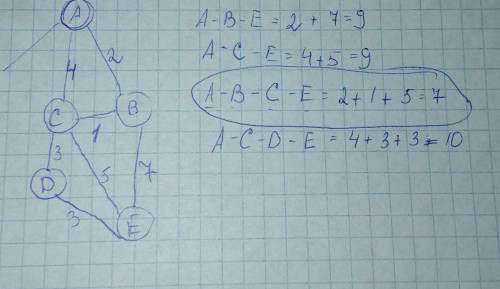 A
2
4
B
C
1
3
5
7
D
3
E
A-B-E = 2 + 7 = 9
A-C-E = 4+5 = 9
A-B-C-E = 2+1+5=7
A-C-D-E = 4+3+3=10